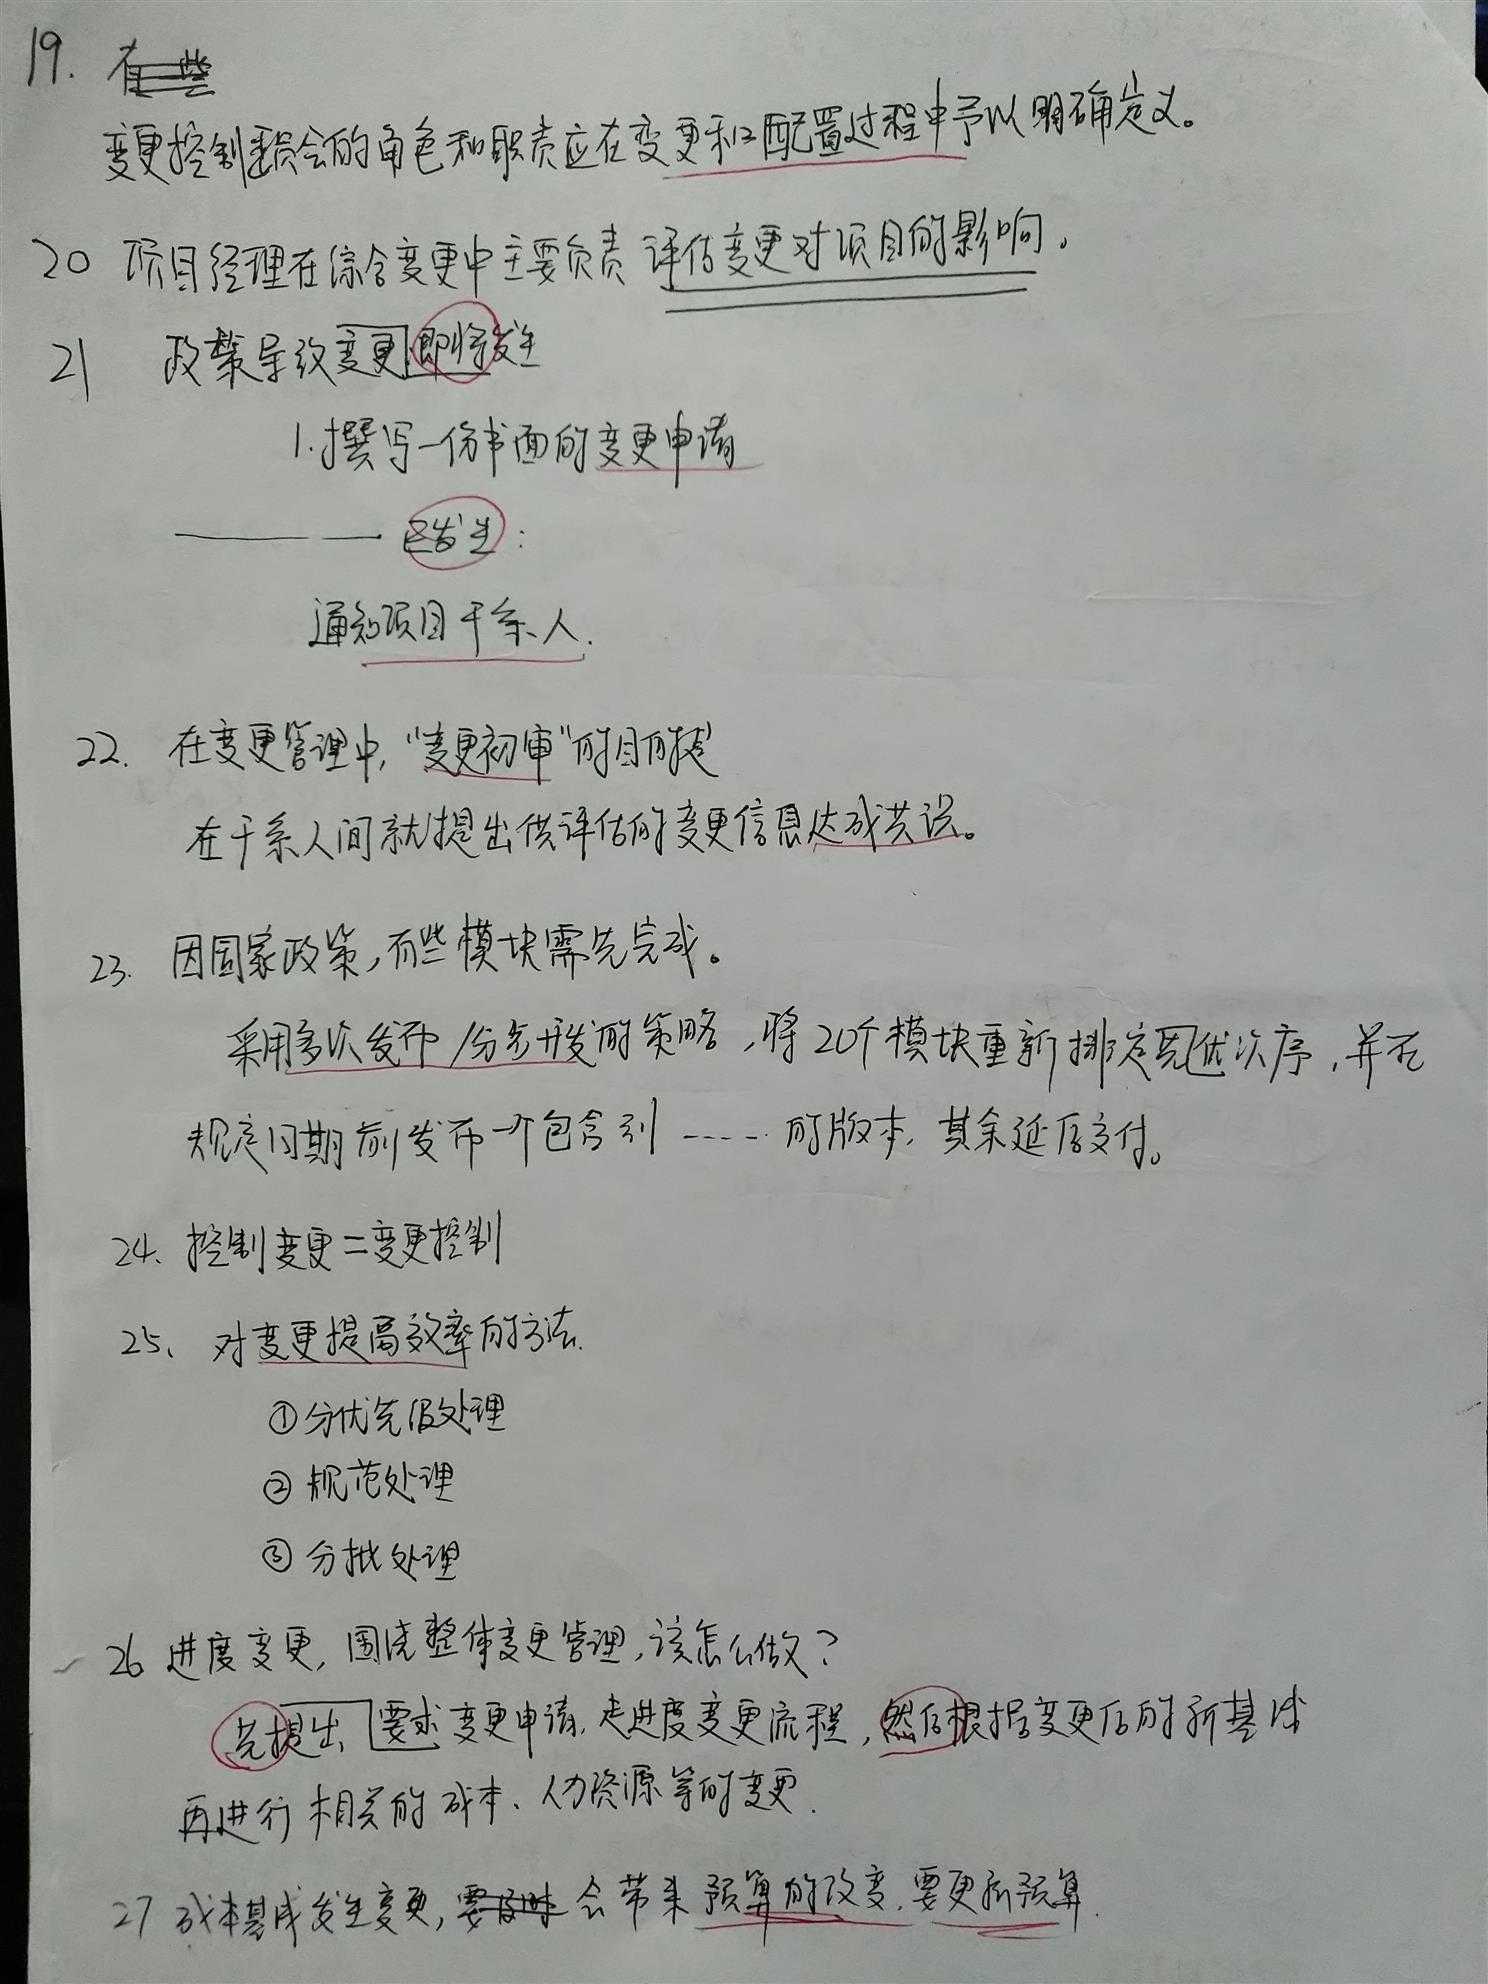 19. 有些
变更控制委员会的角色和职责应在变更和配置过程中予以明确定义。
20 项目经理在综合变更中主要负责 评估变更对项目的影响。
21 政策导致变更即将发生
1.撰写一份书面的变更申请
—— — 已发生:
通知项目干系人.
22. 在变更管理中,“变更初审”的目的是
在干系人间就提出供评估的变更信息达成共识。
23. 因国家政策,有些模块需先完成。
采用多次发布/分步开发的策略,将20个模块重新排定优先次序,并在
规定日期前发布一个包含到 ------ 的版本,其余延后交付。
24. 控制变更=变更控制
25、对变更提高效率的方法.
①分优先级处理
②规范处理
③分批处理
26 进度变更,围绕整体变更管理,该怎么做?
先提出 要求 变更申请,走进度变更流程,然后根据变更后的新基准
再进行 相关的成本、人力资源等的变更.
27 成本基准发生变更,要及时 会带来预算的改变.要更新预算.